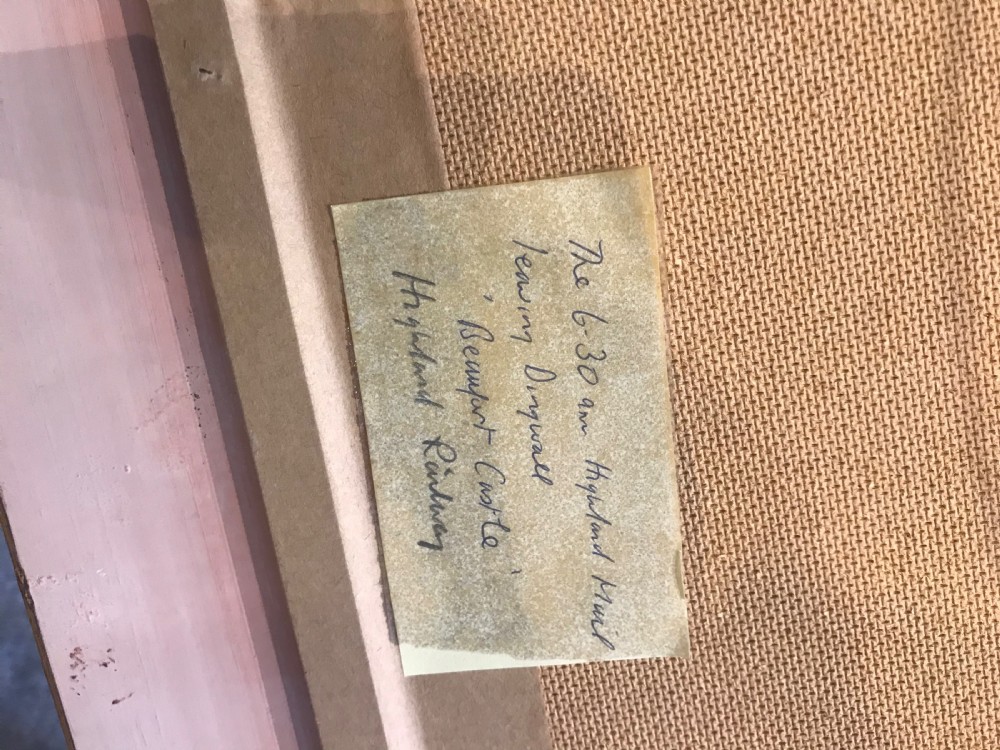 The 6.30 am Highland Mail
leaving Dingwall
'Beaufort Castle'
Highland Railway